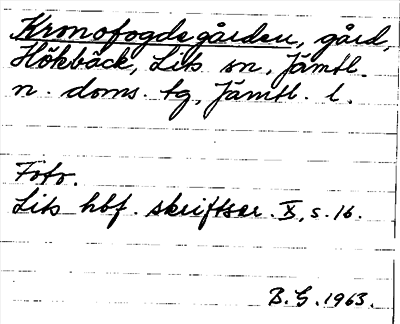 Kronofogdegården, gård,
Hökbäck, Lits sn, Jämtl.
n. doms. tg, Jämtl. l.
Foto.
Lits hbf. skriftser. X, s. 16.
B.G. 1963.